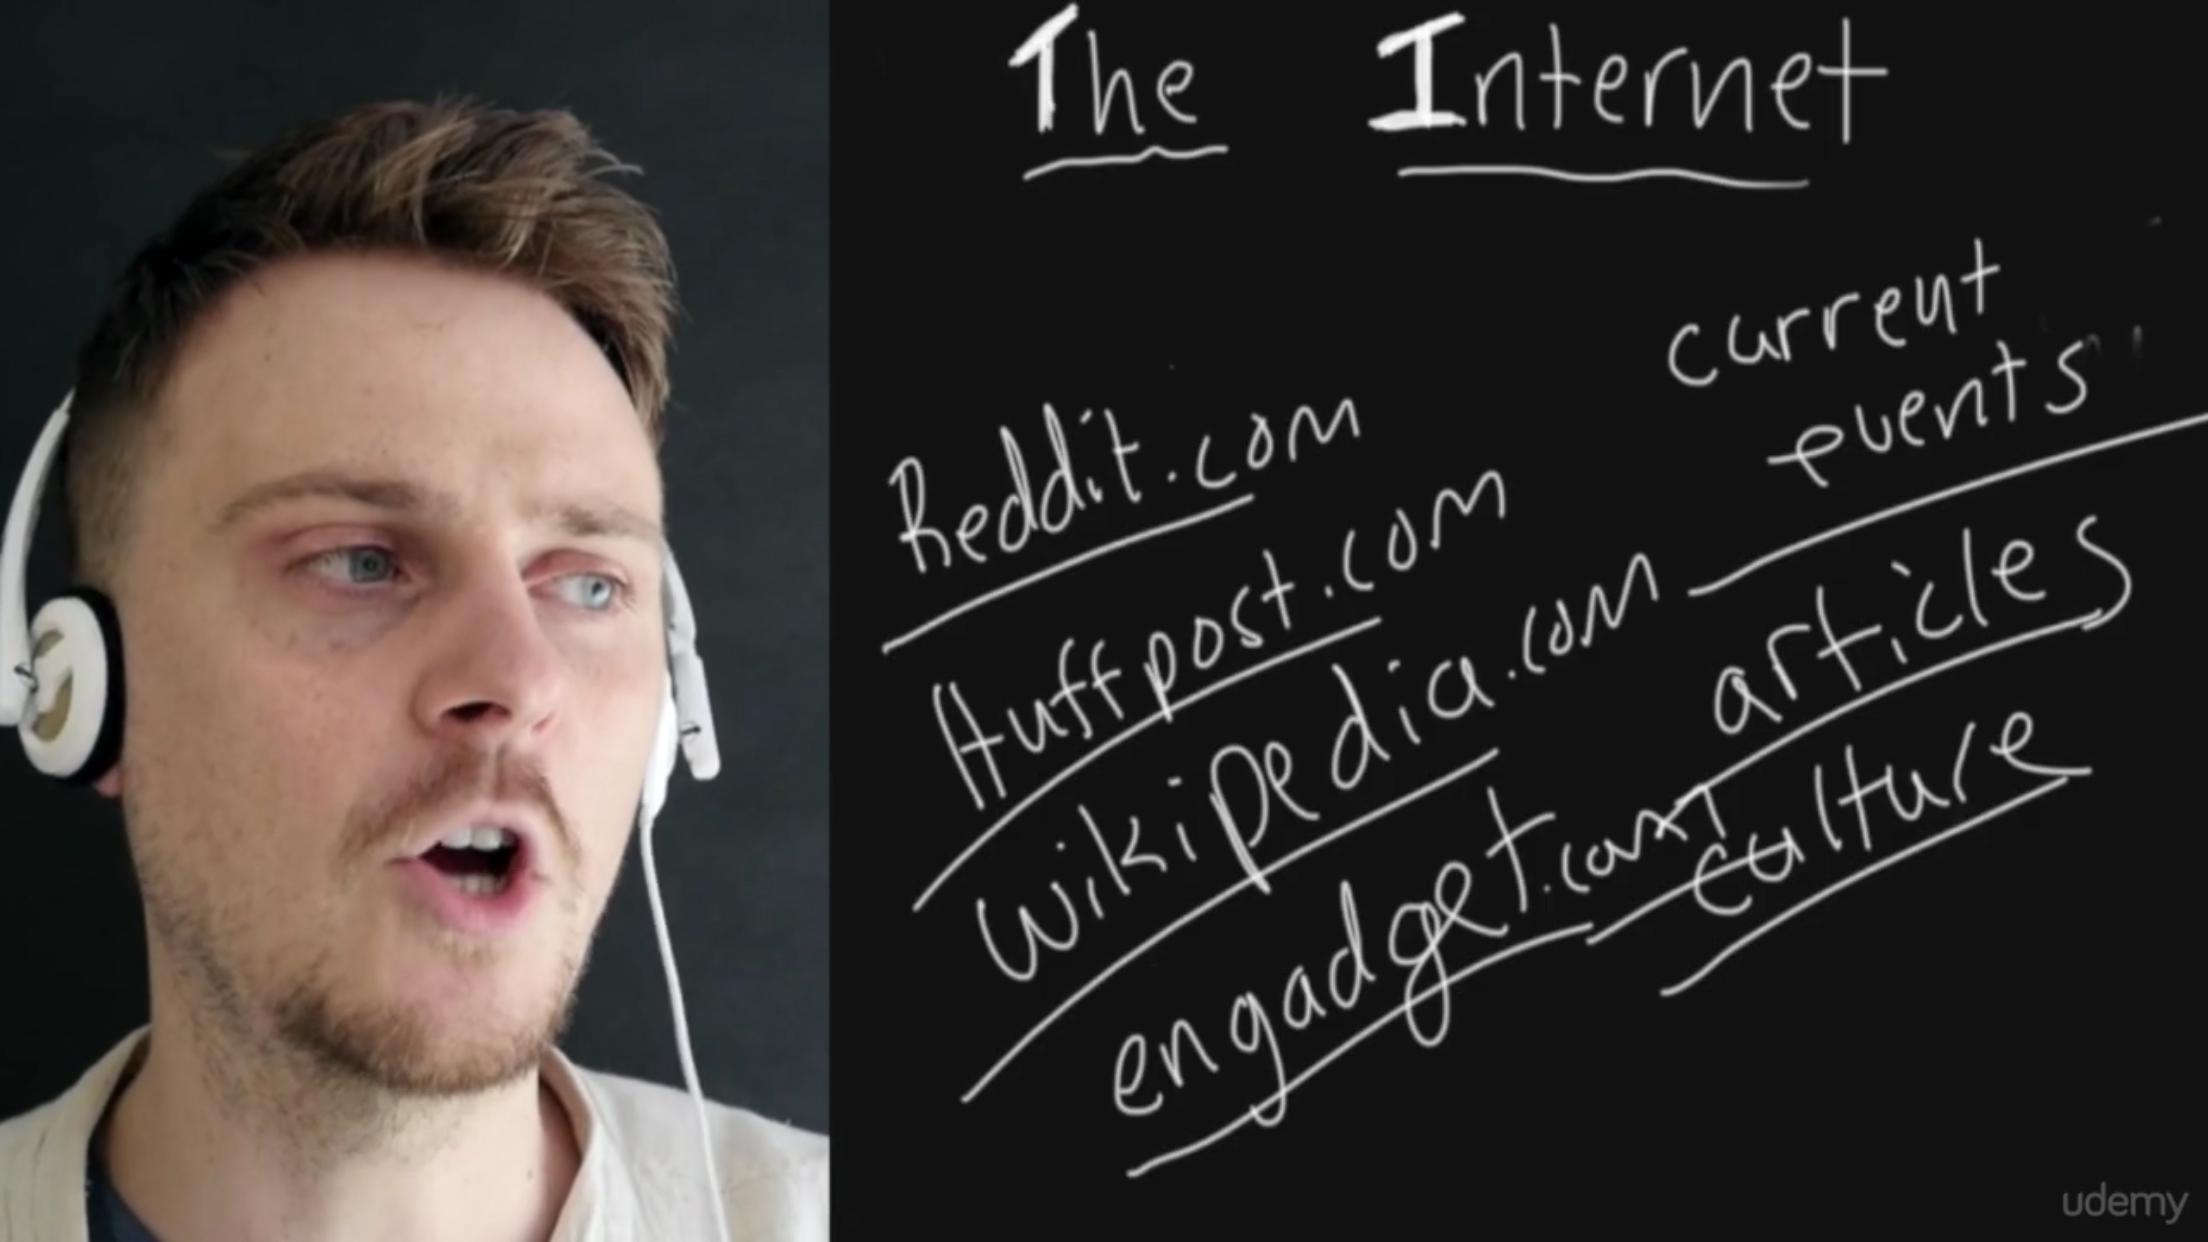 The Internet
Reddit.com
Huffpost.com
wikipedia.com
engadget.com
current
events
articles
culture
udemy